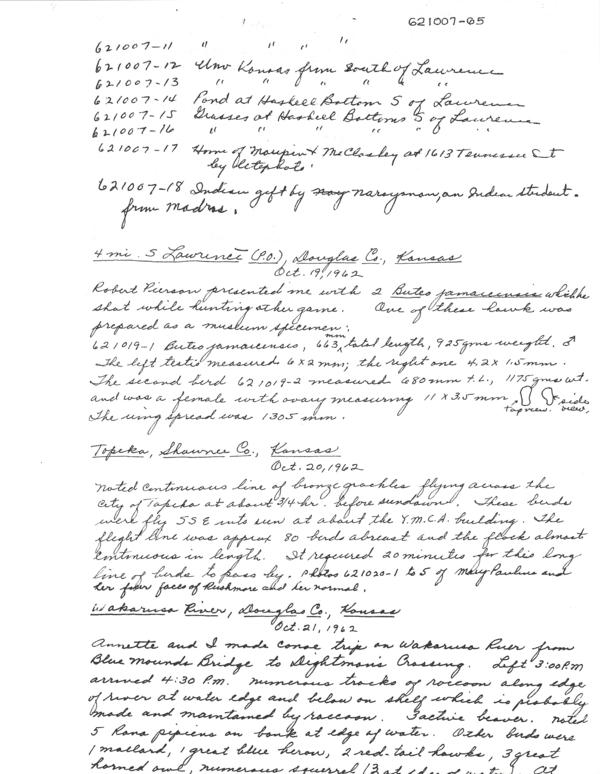 621007-65
621007-11 " " " "
621007-12 Univ Kansas from South of Lawrence
621007-13 " " " " " "
621007-14 Pond at Haskell Bottom S of Lawrence
621007-15 Grasses at Haskell Bottoms S of Lawrence
621007-16 " " " " " "
621007-17 Home of Maupin & McCloskey at 1613 Tennessee St
by
621007-18 Indian gift by Narayanan, an Indian student
from Madras.
4 mi. S Lawrence (P.O.), Douglas Co., Kansas
Oct. 19, 1962
Robert Pierson presented me with 2 Buteo jamaicensis which he
shot while hunting other game. One of these hawk was
prepared as a museum specimen:
621019-1 Buteo jamaicensis, 663 mm total length, 925 gms weight. ♂
The left testis measured 6 x 2 mm; the right one 4.2 x 1.5 mm.
The second bird 621019-2 measured 680 mm t.L., 1175 gms wt.
and was a female with ovary measuring 11 x 3.5 mm. side
The wing spread was 1305 mm. top view. view.
Topeka, Shawnee Co., Kansas
Oct. 20, 1962
Noted continuous line of bronze grackles flying across the
City of Topeka at about 3/4 hr. before sundown. These birds
were fly SSE into sun at about the Y.M.C.A. building. The
flight line was approx 80 birds abreast and the flock almost
continuous in length. It required 20 minutes for this long
line of birds to pass by. Photos 621020-1 to 5 of Mary Pauline and
her four faces of Rushmore and her normal.
Wakarusa River, Douglas Co., Kansas
Oct. 21, 1962
Annette and I made canoe trip on Wakarusa River from
Blue Mounds Bridge to Dightman's Crossing. Left 3:00 P.M
arrived 4:30 P.M. numerous tracks of raccoon along edge
of river at water edge and below on shelf which is probably
made and maintained by raccoon. 3 active beaver. noted
5 Rana pipiens on bank at edge of water. Other birds were
1 mallard, 1 great blue heron, 2 red-tail hawks, 3 great
horned owl, numerous squirrel (3 at edge of water). At